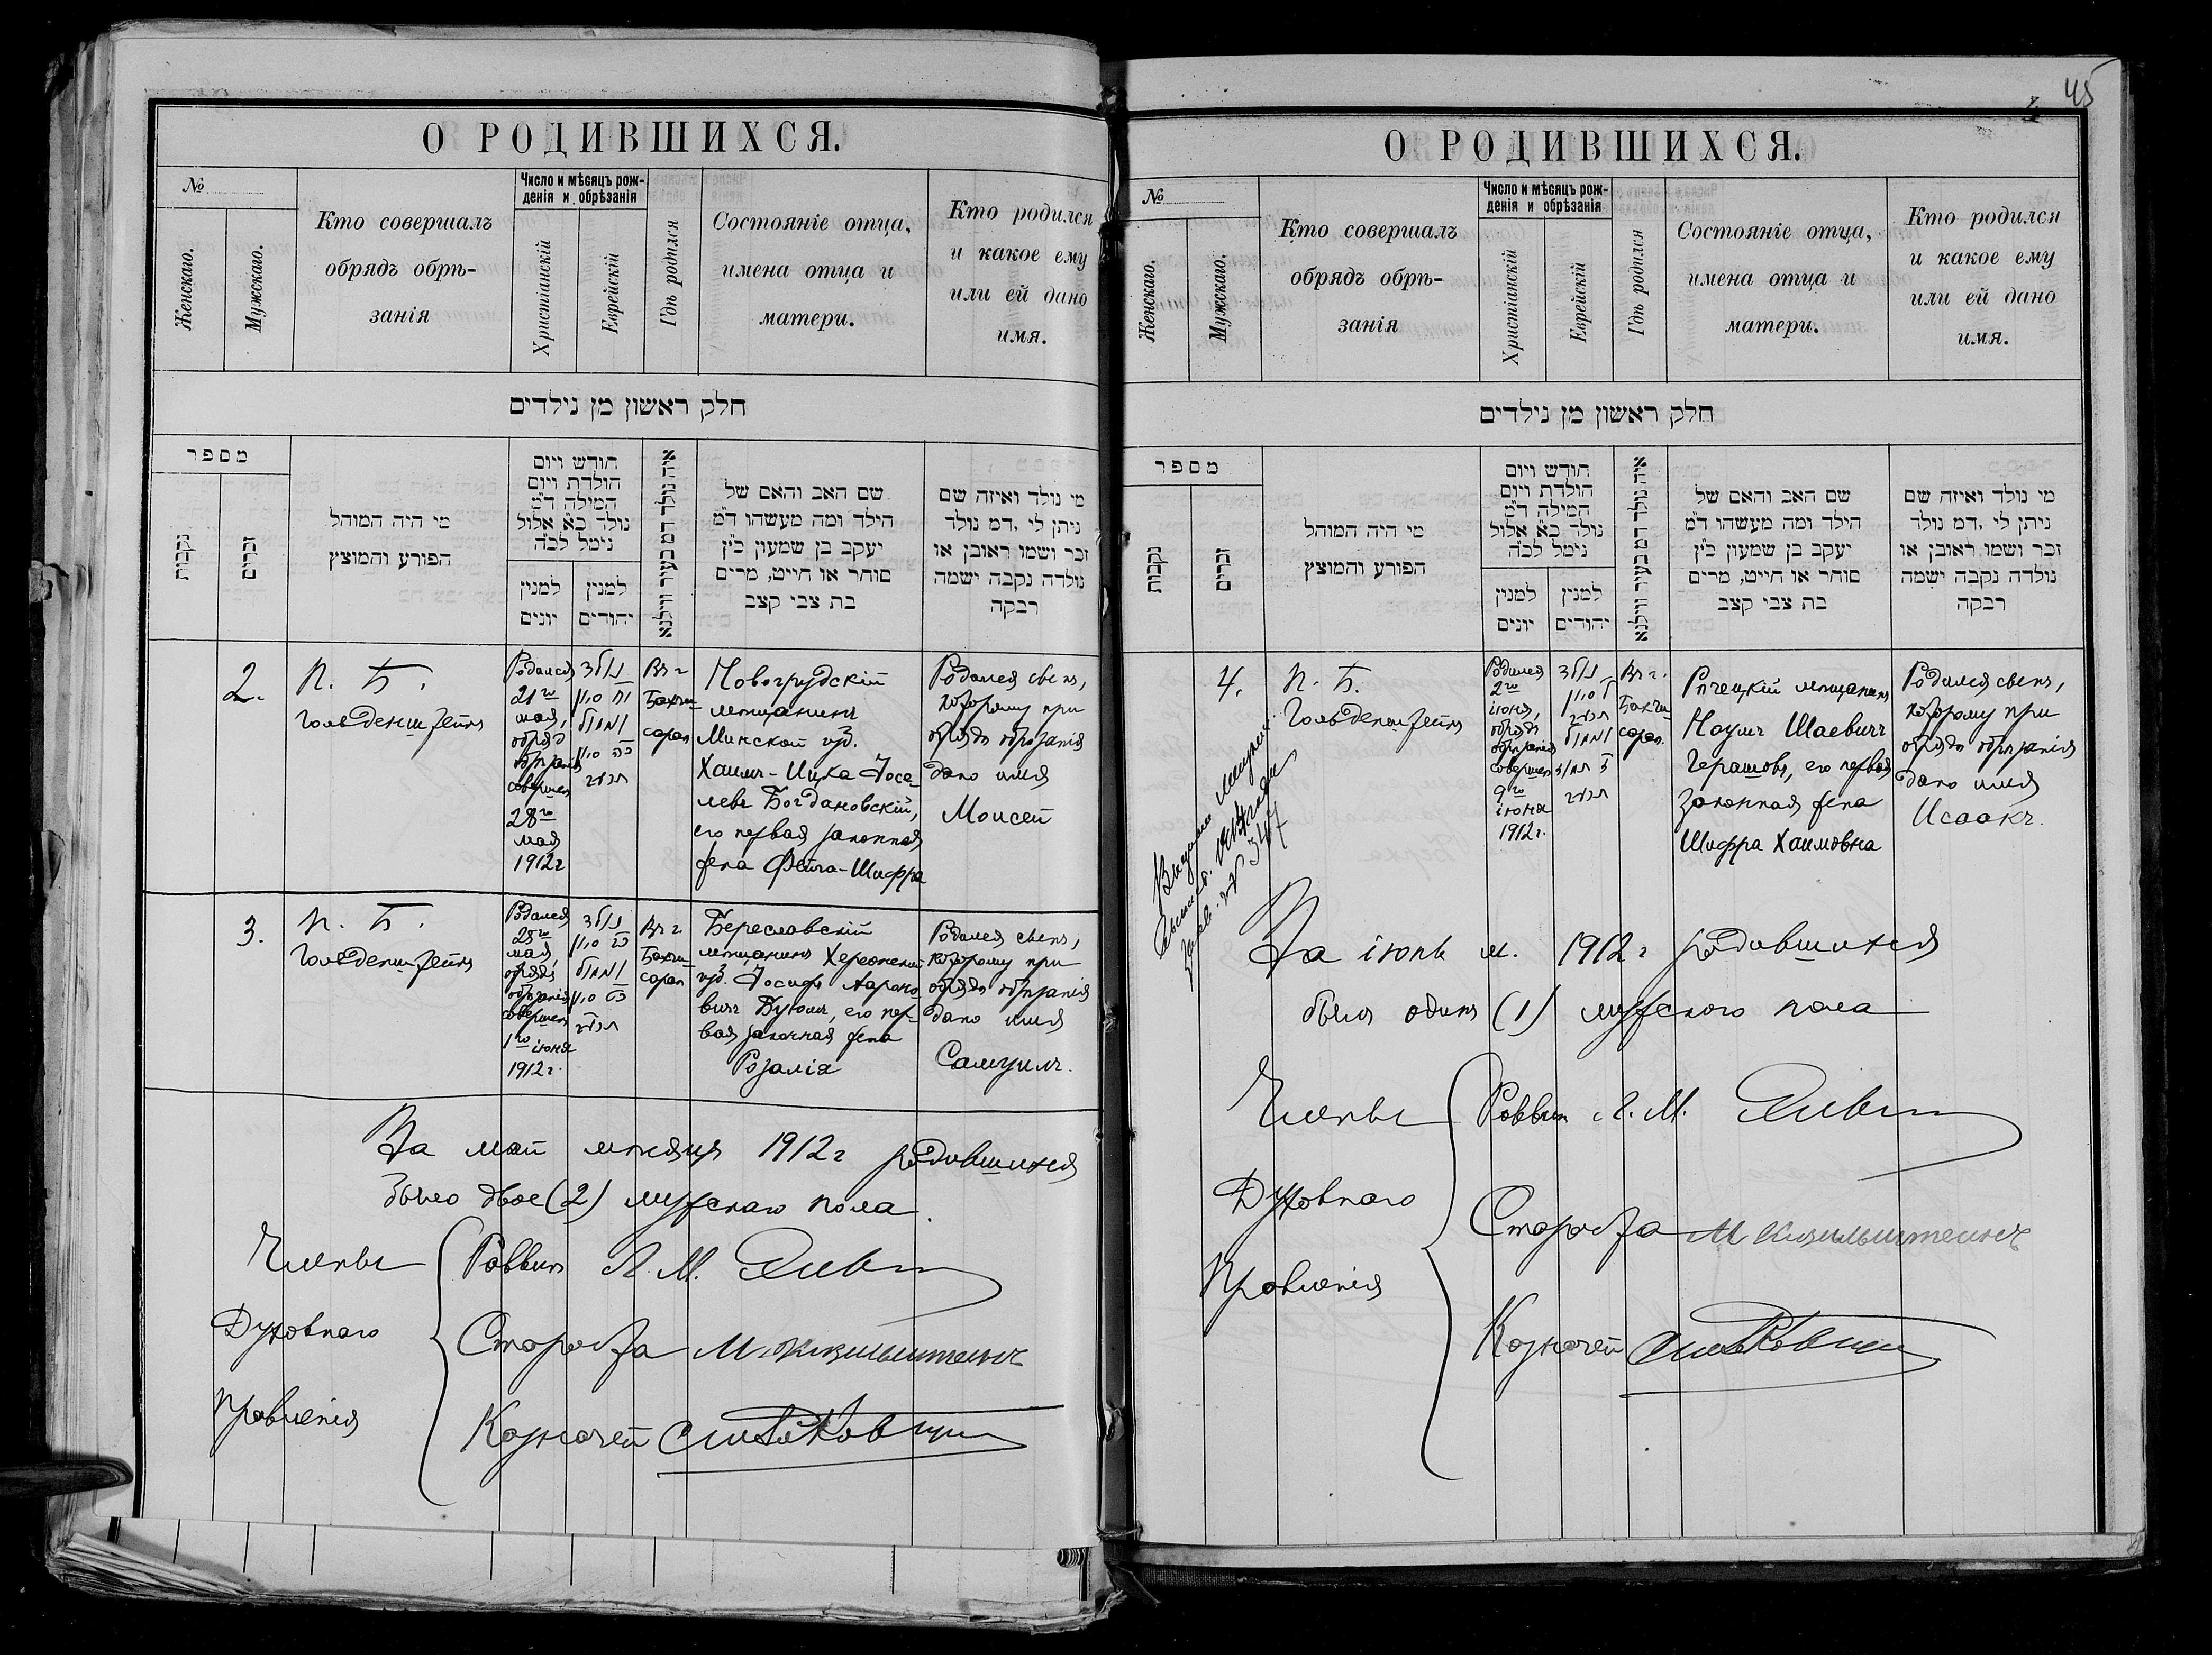 О РОДИВШИХСЯ.
№
Женскаго.
Мужскаго.
Кто совершалъ
обрядъ обрѣ-
занія
Число и мѣсяцъ рож-
денія и обрѣзанія
Христіанскій
Еврейскій
Гдѣ родился
Состояніе отца,
имена отца и
матери.
Кто родился
и какое ему
или ей дано
имя.
חלק ראשון מן נילדים
מספר
נקבות
זכרים
מי היה המוהל
הפורע והמוצץ
חודש ויום
הולדת ויום
המילה ד״מ
נולד כ״א אלול
נימל לכ״ה
למנין
יונים
למנין
יהודים
איה נולד דמ בעיר ווילנא
שם האב והאם של
הילד ומה מעשהו ד״מ
יעקב בן שמעון כ״ץ
סוחר או חייט, מרים
בת צבי קצב
מי נולד ואיזה שם
ניתן לי, דמ נולד
זכר ושמו ראובן או
נולדה נקבה ישמה
רבקה
2.
П. Б.
Гольденштейнъ
Родился
21го
мая,
обрядъ
обрѣзанія
совершенъ
28го
мая
1912г
נולד
ח סיון
ונמול
טו סיון
תרע״ב
Въ г.
Бахчи-
сарай
Новогрудскій
мѣщанинъ
Минской губ.
Хаимъ-Ицка Іосе-
левъ Богдановскій,
его первая законная
жена Фейга-Шифра
Родился сынъ,
которому при
обрядѣ обрѣзанія
дано имя
Моисей
3.
П. Б.
Гольденштейнъ
Родился
25го
мая,
обрядъ
обрѣзанія
совершенъ
1го іюня
1912г.
נולד
סיון
ונמול
סיון
תרע״ב
Въ г
Бахчи-
сарай
Береславскій
мѣщанинъ Херсонской
губ. Іосифъ Ароно-
вичъ Бухаиъ, его пер-
вая законная жена
Розалія
Родился сынъ,
которому при
обрядѣ обрѣзанія
дано имя
Самуилъ.
За май мѣсяцъ 1912г родившихся
было двое (2) мужскаго пола.
Члены
Духовнаго
Правленія
Раввинъ Л. М.
Староста М. Кизильштейнъ
Казначей
45
4
О РОДИВШИХСЯ.
№
Женскаго.
Мужскаго.
Кто совершалъ
обрядъ обрѣ-
занія
Число и мѣсяцъ рож-
денія и обрѣзанія
Христіанскій
Еврейскій
Гдѣ родился
Состояніе отца,
имена отца и
матери.
Кто родился
и какое ему
или ей дано
имя.
חלק ראשון מן נילדים
מספר
נקבות
זכרים
מי היה המוהל
הפורע והמוצץ
חודש ויום
הולדת ויום
המילה ד״מ
נולד כ״א אלול
נימל לכ״ה
למנין
יונים
למנין
יהודים
איה נולד דמ בעיר ווילנא
שם האב והאם של
הילד ומה מעשהו ד״מ
יעקב בן שמעון כ״ץ
סוחר או חייט, מרים
בת צבי קצב
מי נולד ואיזה שם
ניתן לי, דמ נולד
זכר ושמו ראובן או
נולדה נקבה ישמה
רבקה
4.
П. Б.
Гольденштейнъ
Родился
2го
іюня,
обрядъ
обрѣзанія
совершенъ
9го
іюня
1912г.
נולד
ל סיון
תרע״ב
ונמול
ז תמוז
תרע״ב
Въ г.
Бахчи-
сарай.
Рѣчецкій мѣщанинъ
Наумъ Шаевичъ
Герашовъ, его первая
законная жена
Шифра Хаимовна
Родился сынъ,
которому при
обрядѣ обрѣзанія
дано имя
Исаакъ.
За іюнь м. 1912г родившихся
былъ одинъ (1) мужскаго пола
Члены
Духовнаго
Правленія
Раввинъ Л. М.
Староста М Кизильштейнъ
Казначей